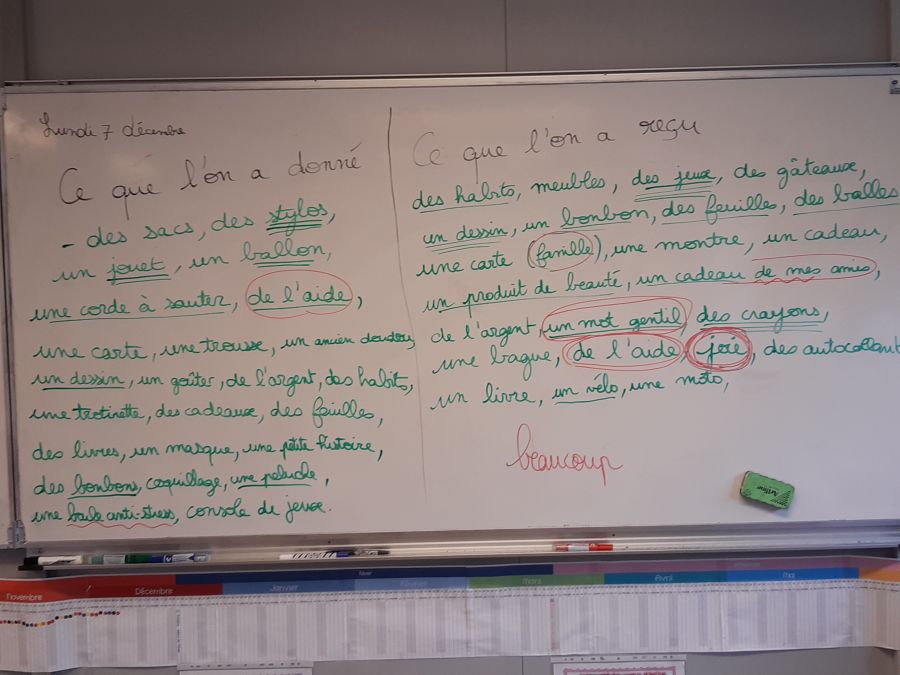 Lundi 7 décembre
Ce que l'on a donné
- des sacs, des stylos,
un jouet, un ballon,
une corde à sauter, de l'aide,
une carte, une trousse, un ancien doudou
un dessin, un goûter, de l'argent, des habits,
une trotinette, des cadeaux, des feuilles,
des livres, un masque, une petite histoire,
des bonbons, coquillage, une peluche,
une balle anti-stress, console de jeux.
Ce que l'on a reçu
des habits, meubles, des jeux, des gâteaux,
un dessin, un bonbon, des feuilles, des balles
une carte (famille), une montre, un cadeau,
un produit de beauté, un cadeau de mes amis,
de l'argent, un mot gentil, des crayons,
une bague, de l'aide, joie, des autocollant
un livre, un vélo, une moto,
beaucoup
Novembre Décembre Janvier Hiver Février Mars Avril Mai